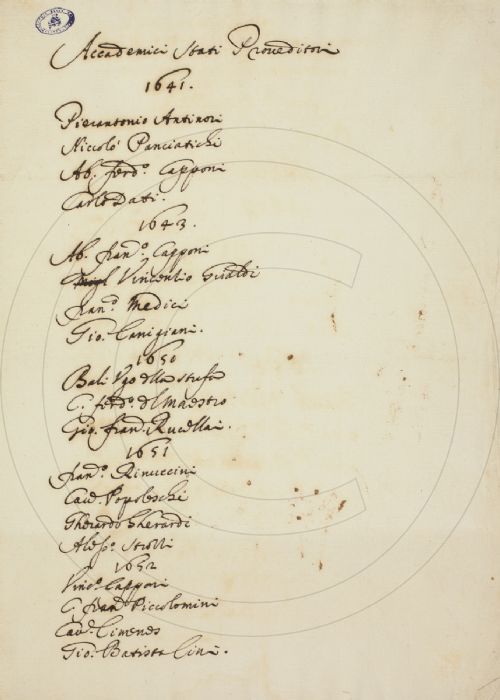 Accademici Stati Proveditori
1641.
Pierantonio Antinori
Niccolò Panciatichi
Ab. Ferd.º Capponi
Carlo Dati.
1643.
Ab. Fran.º Capponi
Vincentio Giraldi
Fran.º Medici
Gio. Canigiani.
1650
Bali Ugo della Stufa
C. Ferd.º del Maestro
Gio. Fran.º Rucellai.
1651
Fran.º Rinuccini
Cav. Popoleschi
Gherardo Gherardi
Aless.º Strozzi
1652
Vinc.º Capponi
C. Fran.º Piccolomini
Cav. Cimenes
Gio. Batista Cini.